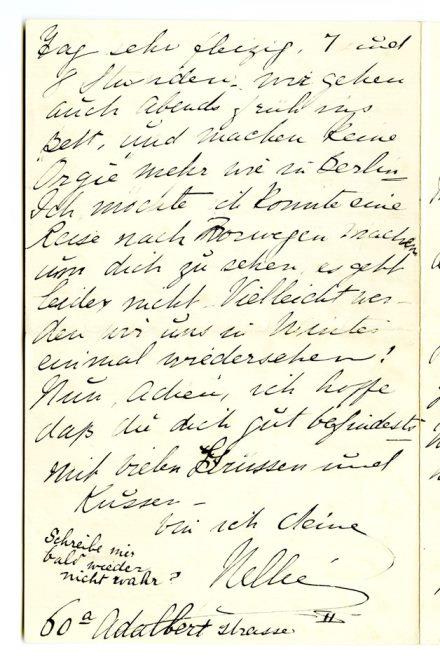 Tag sehr fleizig, 7 und
8 Stunden. wir gehen
auch Abends früh ins
Bett, und machen keine
Orgie mehr wie in Berlin
Ich möchte ich konnte eine
Reise nach Norwegen machen
um dich zu sehen, es geht
leider nicht. Vielleicht wer-
den wir uns in Winter
einmal wiedersehen!
Nun, adieu, ich hoffe
daß du dich gut befindest
mit vielen Grüssen und
Küssen -
bin ich deine
Nellie
Schreibe mir
bald wieder
nicht wahr?
60a Adalbert strasse II